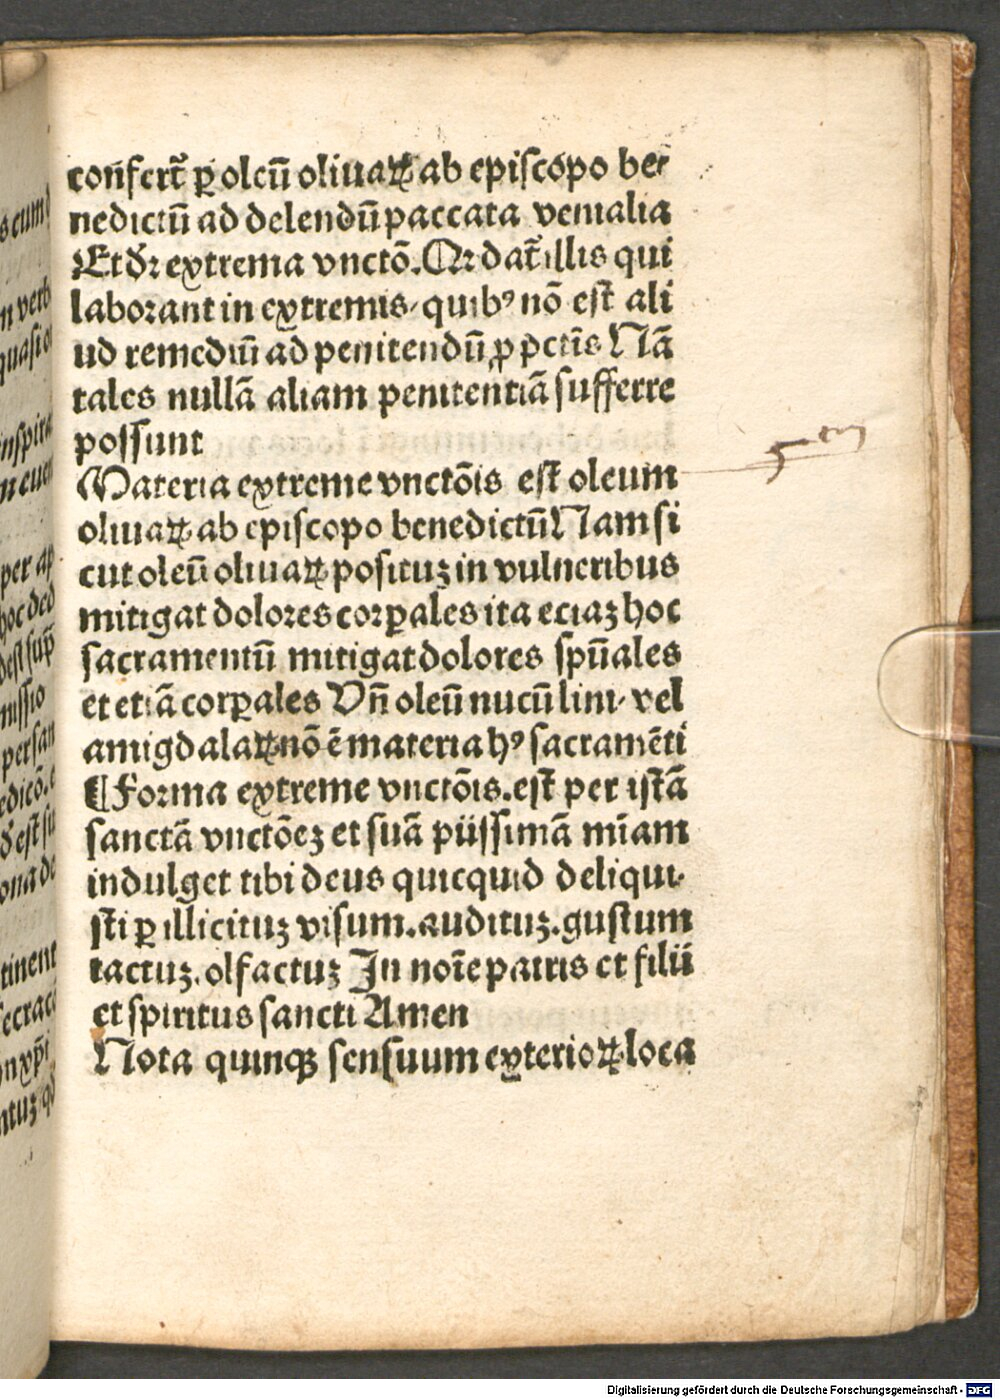 confert᷑ ꝑ oleū oliuaꝝ ab episcopo be⸗
nedictū ad delendū paccata venialia
Et dꝛ extrema vnctō. Qꝛ dat᷑ illis qui
laborant in extremis, quibꝰ nō est ali
ud remediū ad penitendū ꝓ pctīs Nā
tales nullā aliam penitentiā sufferre
possunt
Materia extreme vnctōis est oleum
oliuaꝝ ab episcopo benedictū Nam si
cut oleū oliuaꝝ posituꝫ in vulneribus
mitigat dolores corꝑales ita eciaꝫ hoc
sacramentū mitigat dolores spūales
et etiā corꝑales Vn̄ oleū nucū lini, vel
amigdalaꝝ nō ē materia hꝰ sacramēti
¶ Forma extreme vnctōis. est per istā
sanctā vnctōeꝫ et suā piissimā mīam
indulget tibi deus quicquid deliqui⸗
sti ꝑ illicituꝫ visum. audituꝫ. gustum
tactuꝫ. olfactuꝫ In noīe patris et filii
et spiritus sancti Amen
Nota quinqꝫ sensuum exterioꝝ loca
5tm
Digitalisierung gefördert durch die Deutsche Forschungsgemeinschaft - DFG